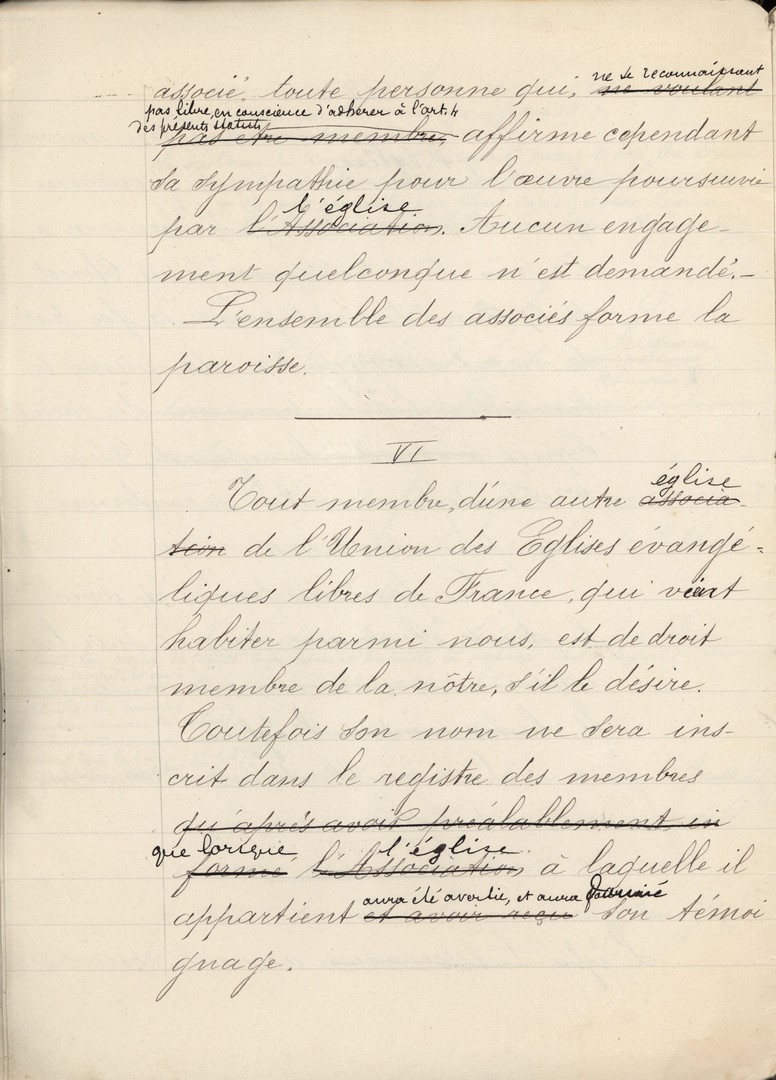 associé, toute personne qui, ne se reconnaissant
ne voulant
pas libre, en conscience d'adhérer à l'art. 4
des présents statuts
pas être membre, affirme cependant
sa sympathie pour l'œuvre poursuivie
l'église
par l'Association. Aucun engage-
ment quelconque n'est demandé.-
L'ensemble des associés forme la
paroisse.
VI
église
Tout membre, d'une autre associa-
tion de l'Union des Eglises évangé=
liques libres de France, qui vient
habiter parmi nous, est de droit
membre de la nôtre, s'il le désire.
Toutefois son nom ne sera ins-
crit dans le registre des membres
qu'après avoir préalablement in
que lorsque l'église
formé l'Association à laquelle il
aura été avertie, et aura fourni
appartient et avoir reçu son témoi
gnage.